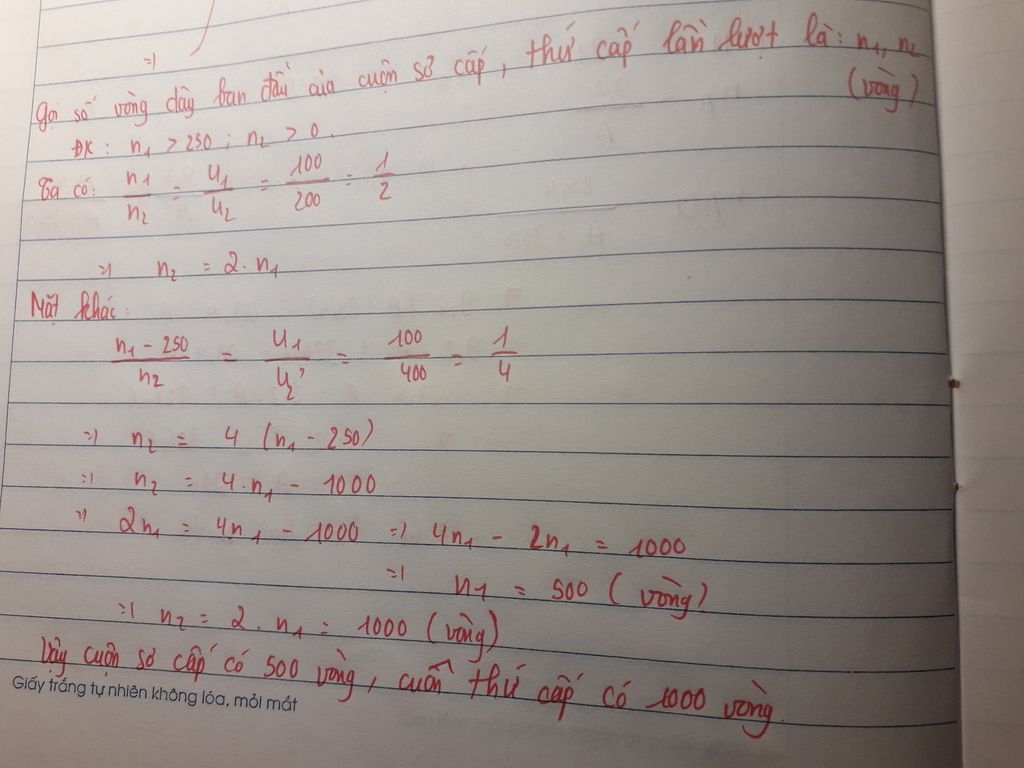 =>
Gọi số vòng dây ban đầu của cuộn sơ cấp, thứ cấp lần lượt là: n₁, n₂
(vòng)
ĐK: n₁ > 250 ; n₂ > 0.
Ta có: n₁/n₂ = U₁/U₂ = 100/200 = 1/2
=> n₂ = 2. n₁
Mặt khác:
(n₁ - 250)/n₂ = U₁/U₂' = 100/400 = 1/4
=> n₂ = 4 (n₁ - 250)
=> n₂ = 4. n₁ - 1000
=> 2n₁ = 4n₁ - 1000 => 4n₁ - 2n₁ = 1000
=> n₁ = 500 (vòng)
=> n₂ = 2. n₁ = 1000 (vòng)
Vậy cuộn sơ cấp có 500 vòng, cuốn thứ cấp có 1000 vòng.
Giấy trắng tự nhiên không lóa, mỏi mắt